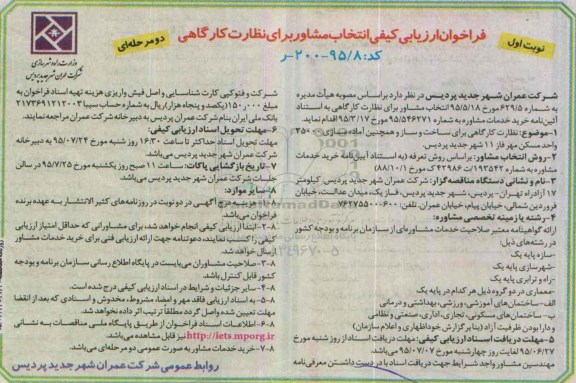 فراخوان ارزیابی کیفی انتخاب مشاور برای نظارت کارگاهی
نوبت اول
دو مرحله‌ای
کد: ۹۵/۸-۲۰۰-ر
وزارت راه و شهرسازی
شرکت عمران شهر جدید پردیس
شرکت عمران شهر جدید پردیس در نظر دارد براساس مصوبه هیأت مدیره
به شماره ۶۲۹/۵ مورخ ۹۵/۵/۱۸ انتخاب مشاور برای نظارت کارگاهی به استناد
آئین‌نامه خرید خدمات مشاوره به شماره ۹۵/۵۴۶۲۷۱ مورخ ۹۵/۳/۱۷ اقدام نماید.
۱-موضوع: نظارت کارگاهی برای ساخت و ساز و همچنین آماده سازی ۳۵۰۰۰
واحد مسکن مهر فاز ۱۱ شهر جدید پردیس.
۲-روش انتخاب مشاور: براساس روش تعرفه (به استناد آیین‌نامه خرید خدمات
مشاوره به شماره ۱۹۳۵۴۲/ت ۴۲۹۸۶ک مورخ ۸۸/۱۰/۱)
۳-نام و نشانی دستگاه مناقصه‌گزار: شرکت عمران شهر جدید پردیس، کیلومتر
۱۷ آزادراه تهران-پردیس، شهر جدید پردیس، فاز یک، میدان عدالت، خیابان
فروردین شمالی، خیابان پیام، خیابان عمران. تلفن: ۶۰۰-۷۶۲۷۵۵۰۰
۴-رشته یا زمینه تخصصی مشاوره:
ارائه گواهینامه معتبر صلاحیت خدمات مشاوره‌ای از سازمان برنامه و بودجه کشور
در رشته‌های ذیل:
-سازه پایه یک
-شهرسازی پایه یک
-راه و ترابری پایه یک
-معماری در دو گروه ذیل هر کدام در پایه یک
الف-ساختمان‌های آموزشی، ورزشی، بهداشتی و درمانی
ب-ساختمان‌های مسکونی، تجاری، اداری، صنعتی و نظامی
و دارا بودن ظرفیت آزاد (بنا بر گزارش خوداظهاری و اعلام سازمان)
۵-مهلت دریافت اسناد ارزیابی کیفی: مهلت دریافت اسناد از روز شنبه مورخ
۹۵/۰۶/۲۷ لغایت روز چهارشنبه مورخ ۹۵/۰۷/۰۷ می‌باشد.
مهندسین مشاور واجد شرایط جهت دریافت اسناد با در دست داشتن معرفی‌نامه
شرکت و فتوکپی کارت شناسایی و اصل فیش واریزی هزینه تهیه اسناد فراخوان به
مبلغ ۱۵۰,۰۰۰ریال (یکصد و پنجاه هزار) ریال به شماره حساب سیبا ۲۱۷۳۶۹۱۲۱۲۰۰۳
بانک ملی ایران بنام شرکت عمران پردیس به دبیرخانه شرکت عمران مراجعه نمایند.
۶-مهلت تحویل اسناد ارزیابی کیفی:
مهلت تحویل اسناد حداکثر تا ساعت ۱۶:۳۰ روز شنبه مورخ ۹۵/۰۷/۲۴ به دبیرخانه
شرکت عمران شهر جدید پردیس می‌باشد.
۷-تاریخ بازگشایی پاکات: ساعت ۱۱ صبح روز یکشنبه مورخ ۹۵/۷/۲۵ در سالن
جلسات شرکت عمران شهر جدید پردیس می‌باشد.
۸-سایر موارد:
هزینه درج آگهی در دو نوبت در روزنامه‌های کثیر الانتشار به عهده برنده
فراخوان می‌باشد.
۸-۲-ابتدا ارزیابی کیفی انجام خواهد شد، برای مشاورانی که حداقل امتیاز ارزیابی
کیفی را کسب نمایند، دعوتنامه جهت ارائه ارزیابی فنی برای خرید خدمات مشاور
ارسال خواهد شد.
۸-۳-صلاحیت مشاوران می‌بایست در پایگاه اطلاع رسانی سازمان برنامه و بودجه
کشور قابل کنترل باشد.
۸-۴-سایر جزئیات و شرایط در اسناد ارزیابی کیفی درج شده است.
۸-۵-به اسناد ارزیابی فاقد مهر و امضا، مشروط، مخدوش و اسنادی که بعد از انقضا
مهلت تعیین شده واصل گردد مطلقا ترتیب اثر داده نخواهد شد.
۸-۶-اطلاعات اسناد فراخوان از طریق پایگاه ملی مناقصات به نشانی
http://iets.mporg.ir نیز قابل مشاهده می‌باشد.
۸-۷-خرید خدمات مشاور به صورت عمومی دو مرحله‌ای می‌باشد.
روابط عمومی شرکت عمران شهر جدید پردیس